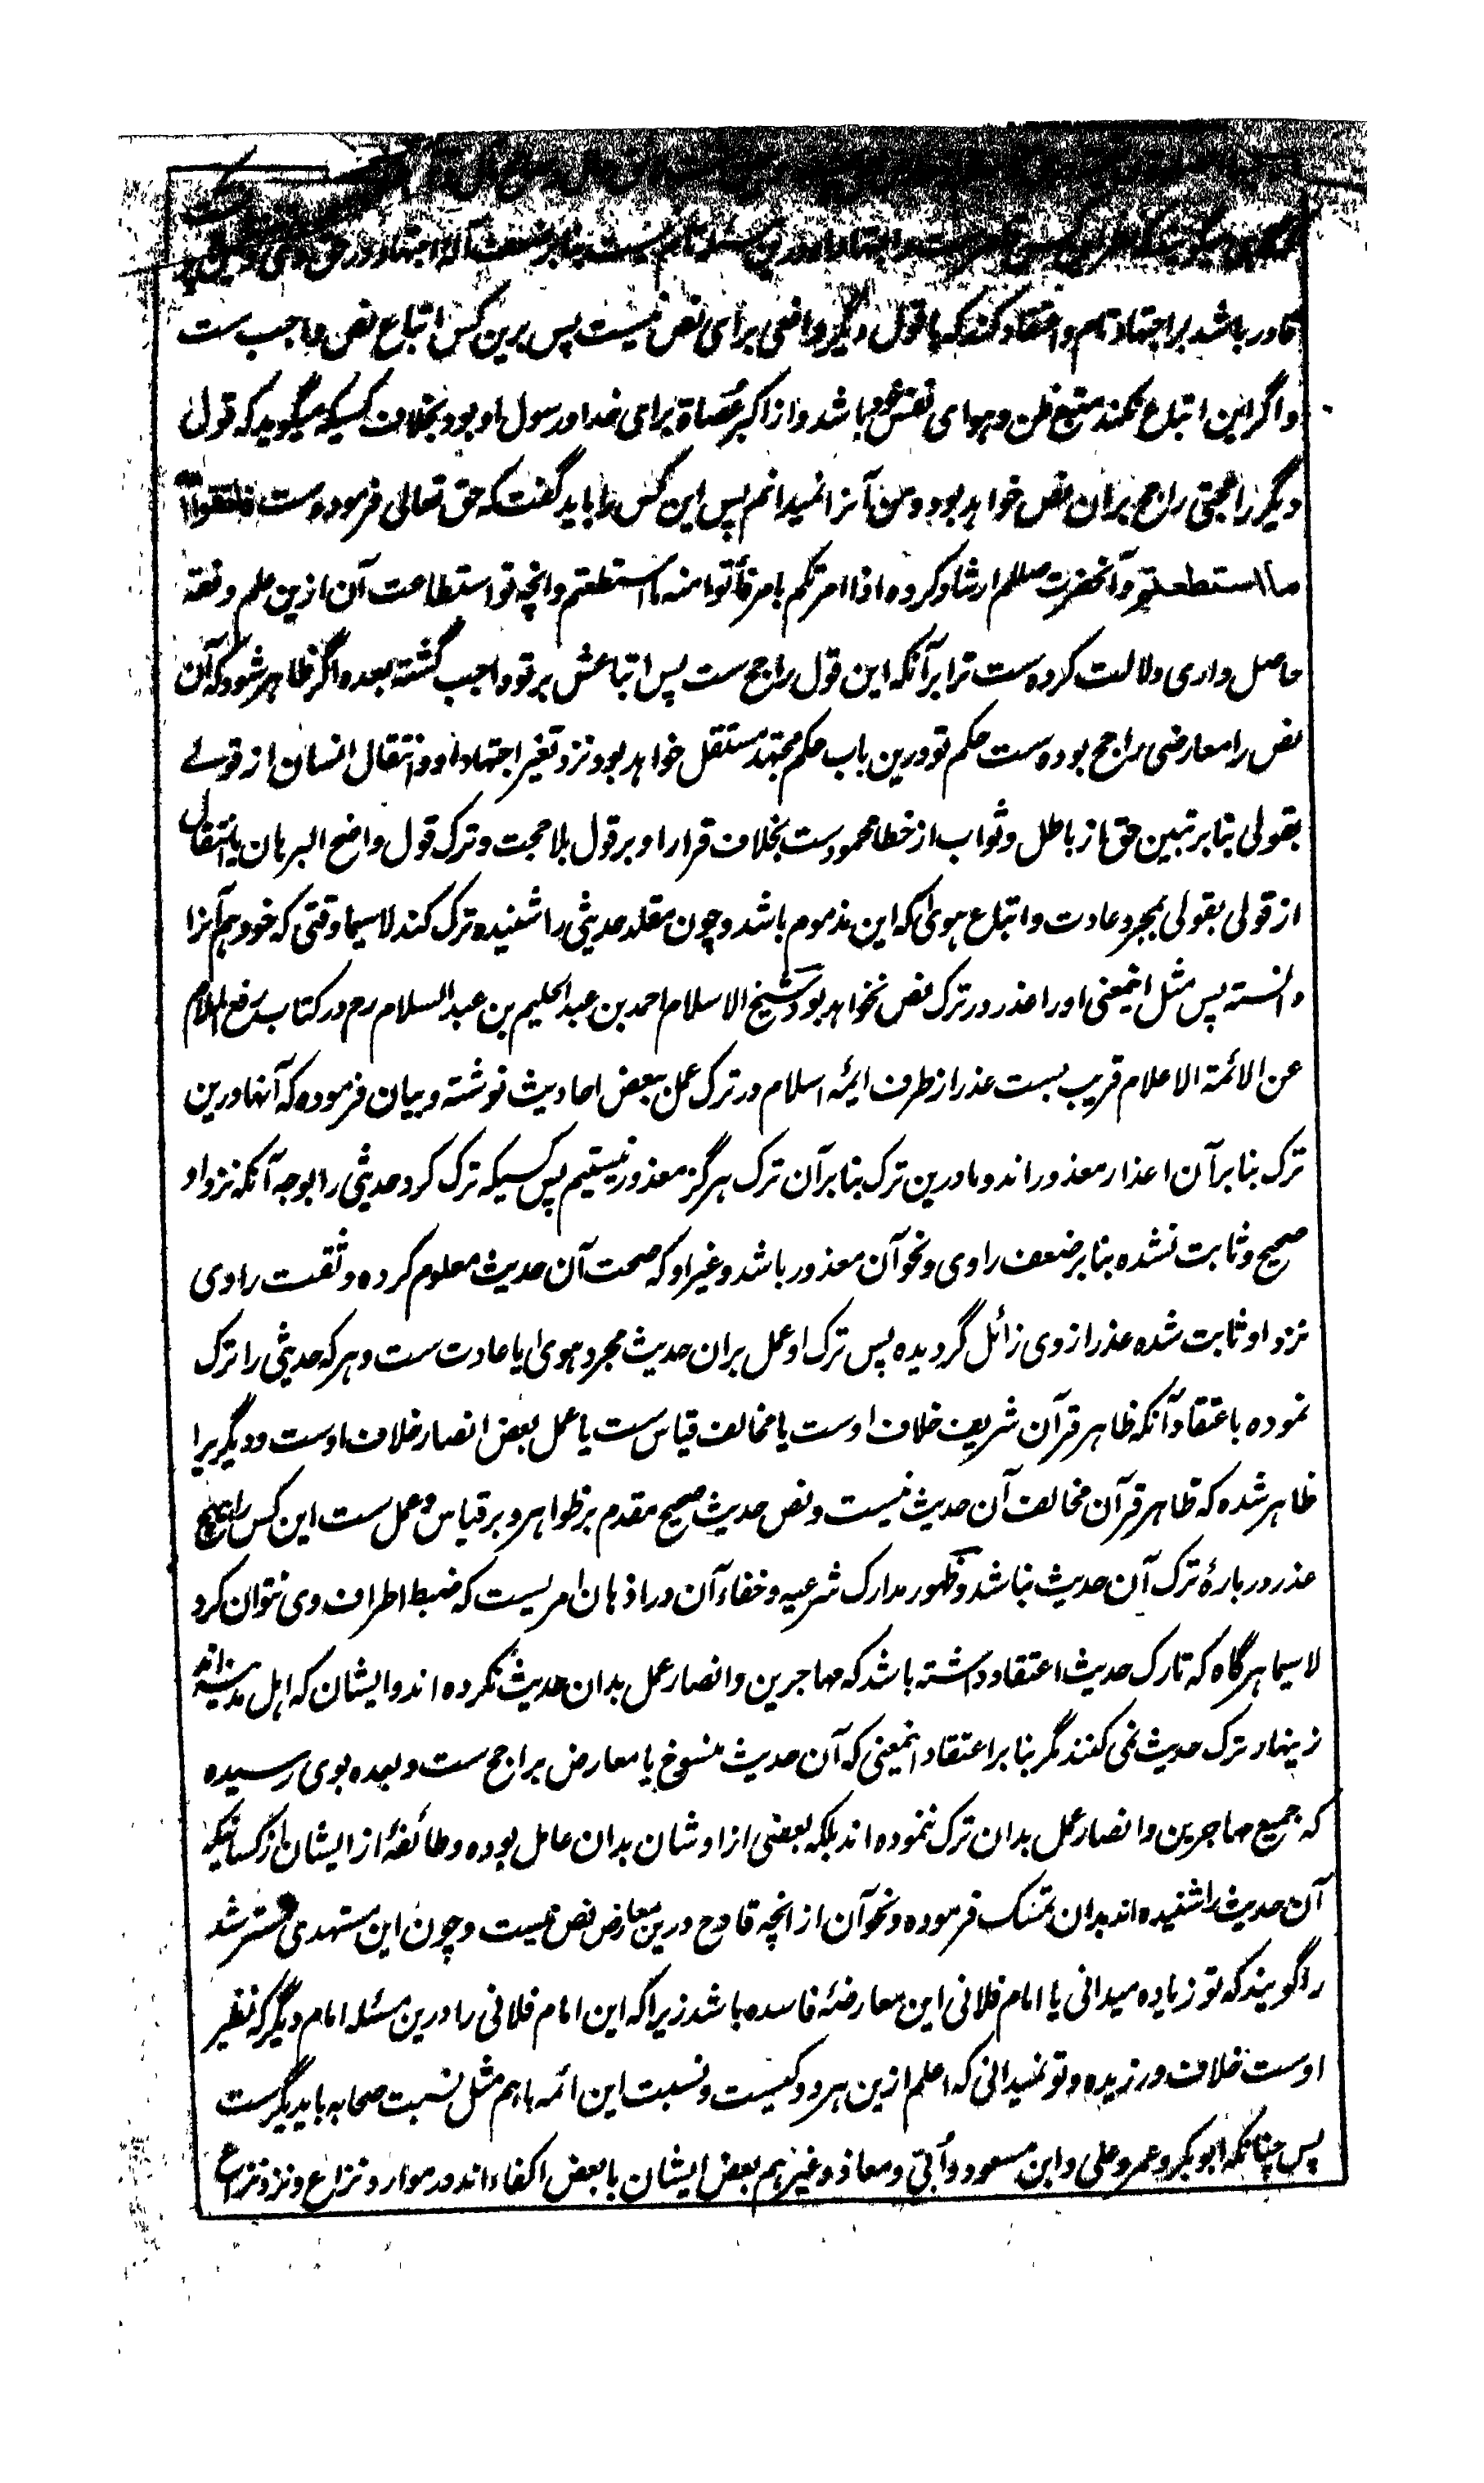 قادر باشد بر اجتهاد تام و اعتقاد کند که با قول دیگر دافعی برای نص نیست پس برین کس اتباع نص واجب ست
و اگر این اتباع نکند متبع ظن و هوای نفس باشد و از اکبر عصاة برای خدا و رسول او بود بخلاف کسیکه میگوید که قول
دیگر را حجتی راجح بر ان نص خواهد بود و من آنرا نمیدانم پس این کس را باید گفت که حق تعالی فرموده ست فاتقوا الله
ما استطعتم و آنحضرت صللم ارشاد کرده اذا امرتکم بامر فأتوا منه ما استطعتم و انچه تو استطاعت آن ازین علم و فقه
حاصل داری دلالت کرده ست ترا بر آنکه این قول راجح ست پس اتباعش بر تو واجب گشته بعده اگر ظاهر شود که آن
نص را معارضی راجح بوده ست حکم تو درین باب حکم مجتهد مستقل خواهد بود نزد تغیر اجتهاد او و انتقال انسان از قولے
بقولی بنابر تبین حق از باطل و ثواب از خطا محمودست بخلاف قرار او بر قول بلا حجت و ترک قول واضح البرهان یا انتقال
از قولی بقولی بمجرد عادت و اتباع هوی که این مذموم باشد و چون مقلد حدیثی را شنیده ترک کند لاسیما وقتی که خود هم آنرا
دانسته پس مثل اینمعنی او را عذر در ترک نص نخواهد بود شیخ الاسلام احمد بن عبد الحلیم بن عبد السلام رح در کتاب رفع الملام
عن الائمة الاعلام قریب بست عذر از طرف ایمه اسلام در ترک عمل ببعض احادیث نوشته و بیان فرموده که آنها درین
ترک بنابر آن اعذار معذور اند و ما درین ترک بنابر آن ترک هرگز معذور نیستیم پس کسیکه ترک کرد حدیثی را بوجه آنکه نزد او
صحیح و ثابت نشده بنابر ضعف راوی و نحو آن معذور باشد و غیر او که صحت آن حدیث معلوم کرده و ثقت راوی
نزد او ثابت شده عذر از وی زائل گردیده پس ترک او عمل بر ان حدیث مجرد هوی یا عادت ست و هر که حدیثی را ترک
نموده باعتقاد آنکه ظاهر قرآن شریف خلاف اوست یا مخالف قیاس ست یا عمل بعض انصار خلاف اوست و دیگریرا
ظاهر شده که ظاهر قرآن مخالف آن حدیث نیست و نص حدیث صحیح مقدم بر ظواهر و بر قیاس و عمل ست این کس را هیچ
عذر در بارۀ ترک آن حدیث نباشد و ظهور مدارک شرعیه و خفاء آن در اذهان امریست که ضبط اطراف وی نتوان کرد
لاسیما هرگاه که تارک حدیث اعتقاد داشته باشد که مهاجرین و انصار عمل بدان حدیث نکرده اند و ایشان که اهل مدینه اند
زینهار ترک حدیث نمی کنند مگر بنابر اعتقاد اینمعنی که آن حدیث منسوخ یا معارض براجح ست و بعده بوی رسیده
که جمیع مهاجرین و انصار عمل بدان ترک ننموده اند بلکه بعضی از اوشان بدان عامل بوده و طائفۀ از ایشان از کسانیکه
آن حدیث را شنیده اند بدان تمسک فرموده و نحو آن از انچه قادح درین معارض نص نیست و چون این مستهدی مسترشد
را گویند که تو زیاده میدانی یا امام فلانی این معارضۀ فاسده باشد زیرا که این امام فلانی را درین مسئله امام دیگر که نظیر
اوست خلاف ورزیده و تو نمیدانی که اعلم ازین هر دو کیست و نسبت این ائمه باهم مثل نسبت صحابه با یدیگرست
پس چنانکه ابوبکر و عمر و علی و ابن مسعود و أبی و معاذ و غیرهم بعض ایشان با بعض اکفاء اند در موارد نزاع و نزد نزاع